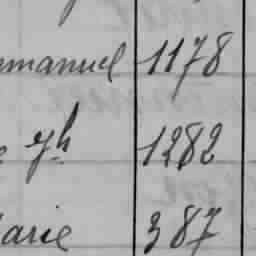 mmanuel 1178
e Jh 1282
arie 387